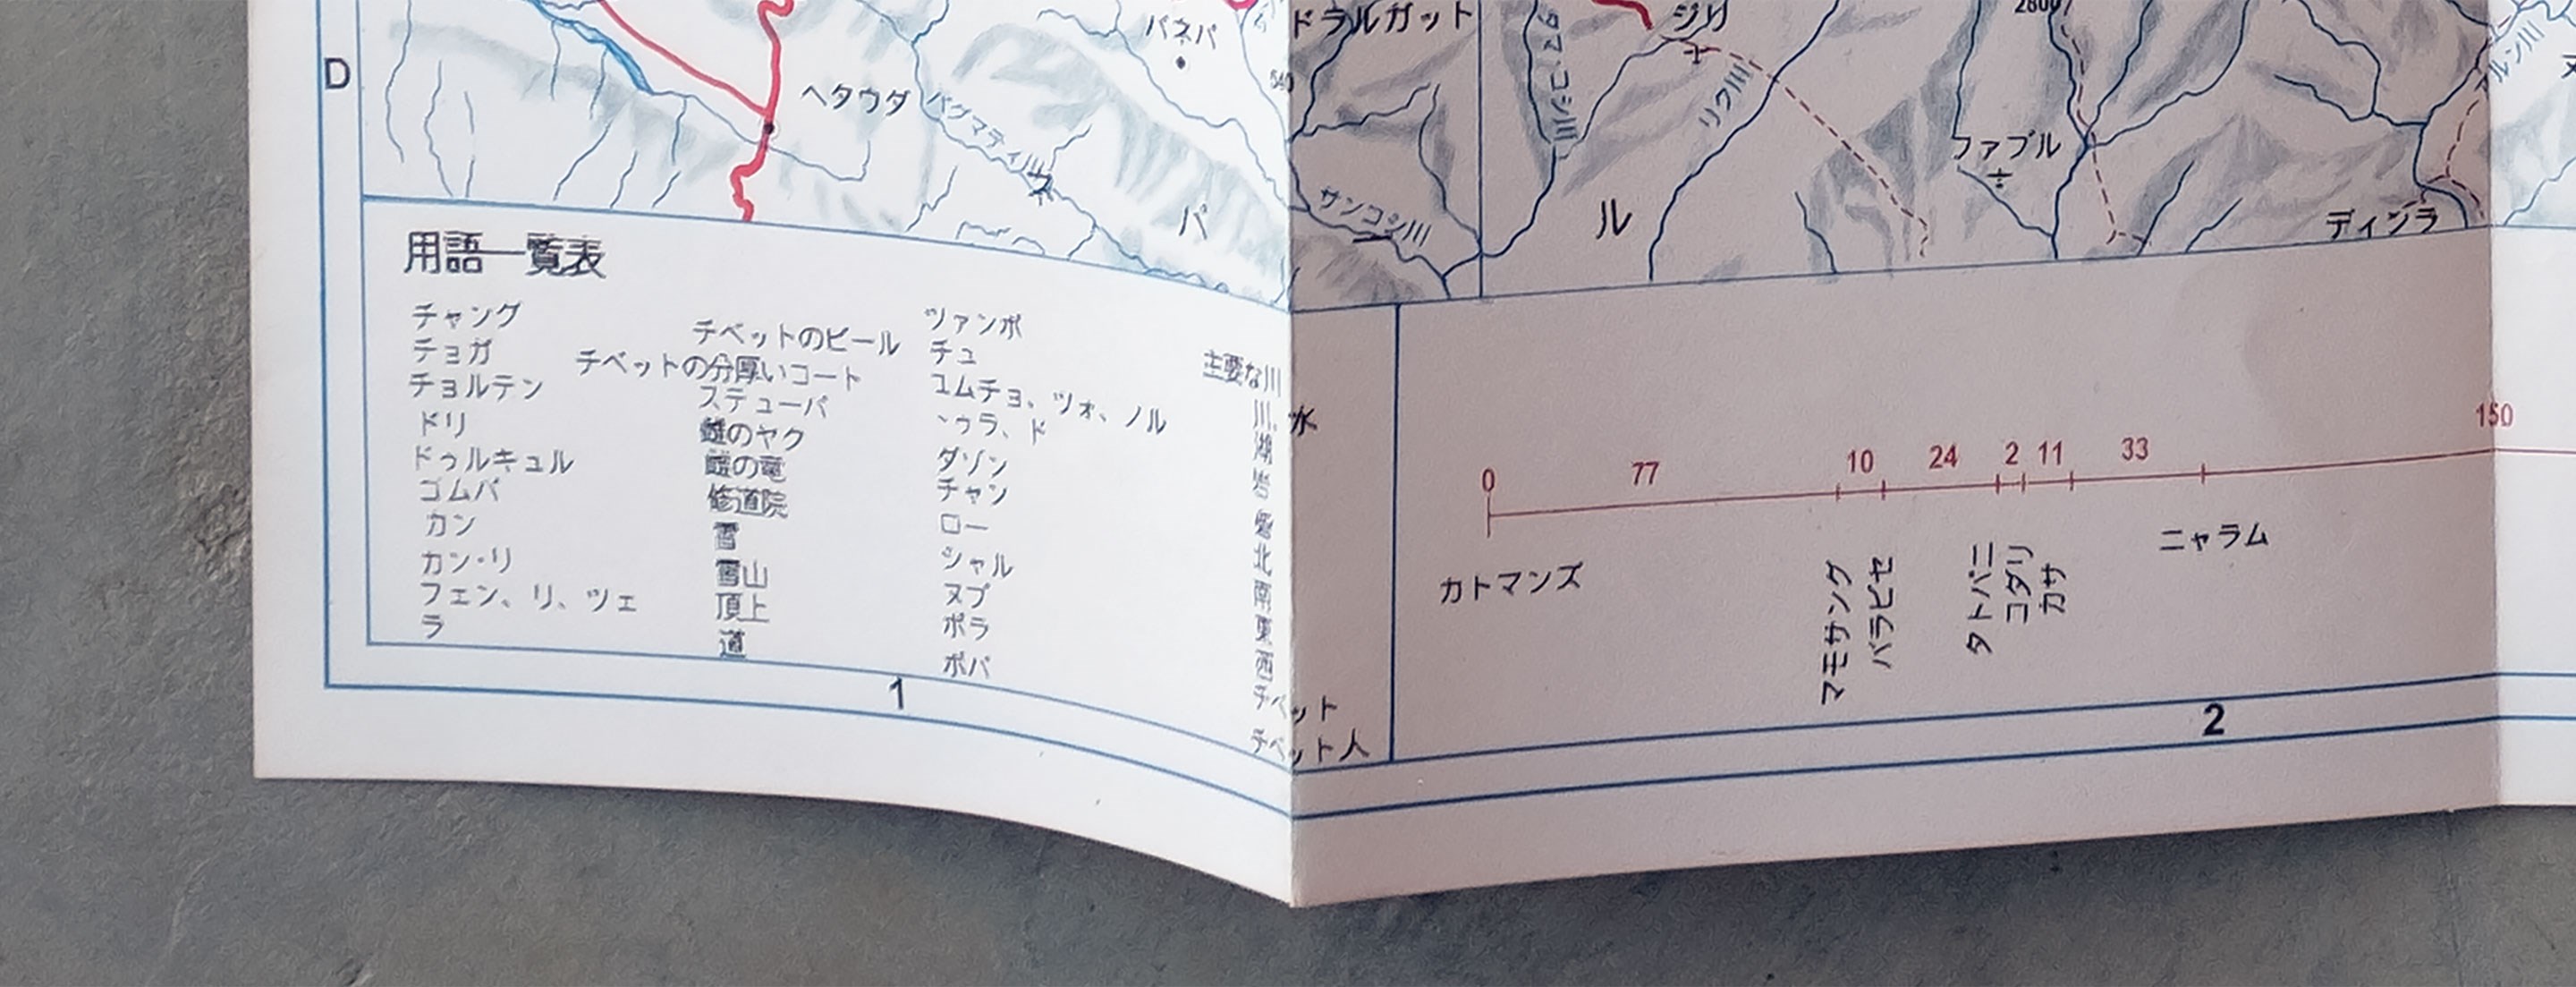 D
パネパ
ドラルガット
ジリ
ヘタウダ
バグマティ川
リク川
ファプル
サンコシ川
パ
ル
ディンラ
用語一覧表
チャング チベットのビール
チョガ チベットの分厚いコート
チョルテン ステューパ
ドリ 雌のヤク
ドゥルキュル の竜
ゴムパ 修道院
カン 雪
カン・リ 雪山
フェン、リ、ツェ 頂上
ラ 道
ツァンポ 主要な川
チュ 川、水
ユムチョ、ツォ、ノル 湖
ゥラ、ド 岩
ダゾン
チャン 北
ロー 南
シャル 東
ヌプ 西
ポラ チベット
ポパ チベット人
0 77 10 24 2 11 33 150
カトマンズ
マモサング
バラビセ
タトパニ
コダリ
カサ
ニャラム
1
2